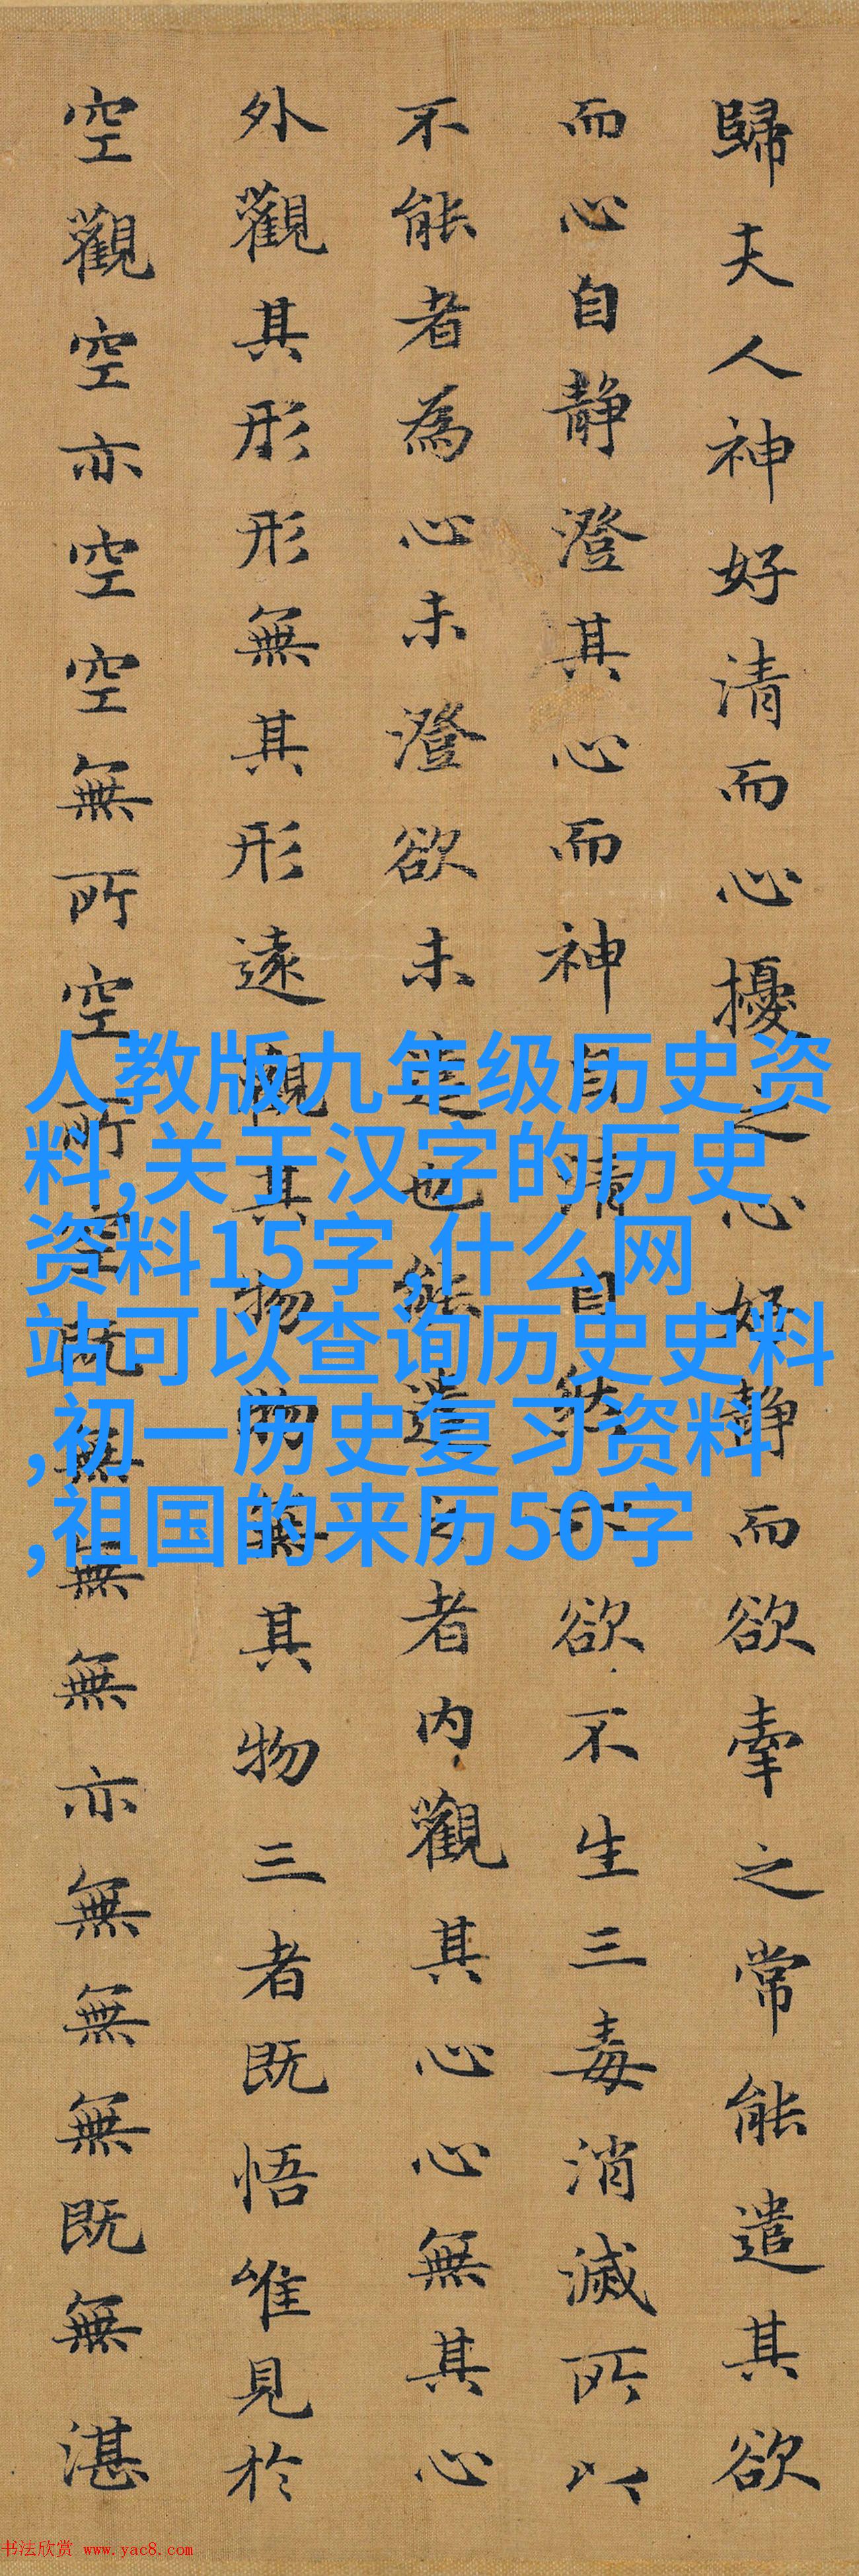 歸夫人神好清而心擾之心好静而欲牽之常能遣其欲
而心自静澄其心而神自清自然六欲不生三毒消滅所以
不能者為心未澄欲未遣也能遣之者内觀其心心無其心
外觀其形形無其形遠觀其物物無其物三者既悟唯見於
空觀空亦空空無所空所空既無無無亦無無無既無湛
人教版九年级历史资
料,关于汉字的历史
资料15字,什么网
站可以查询历史史料
,初一历史复习资料
,祖国的来历50字
书法欣赏 www.yac8.com